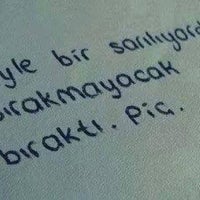 yle bir sarılıyord
bırakmayacak
bıraktı. Piç.